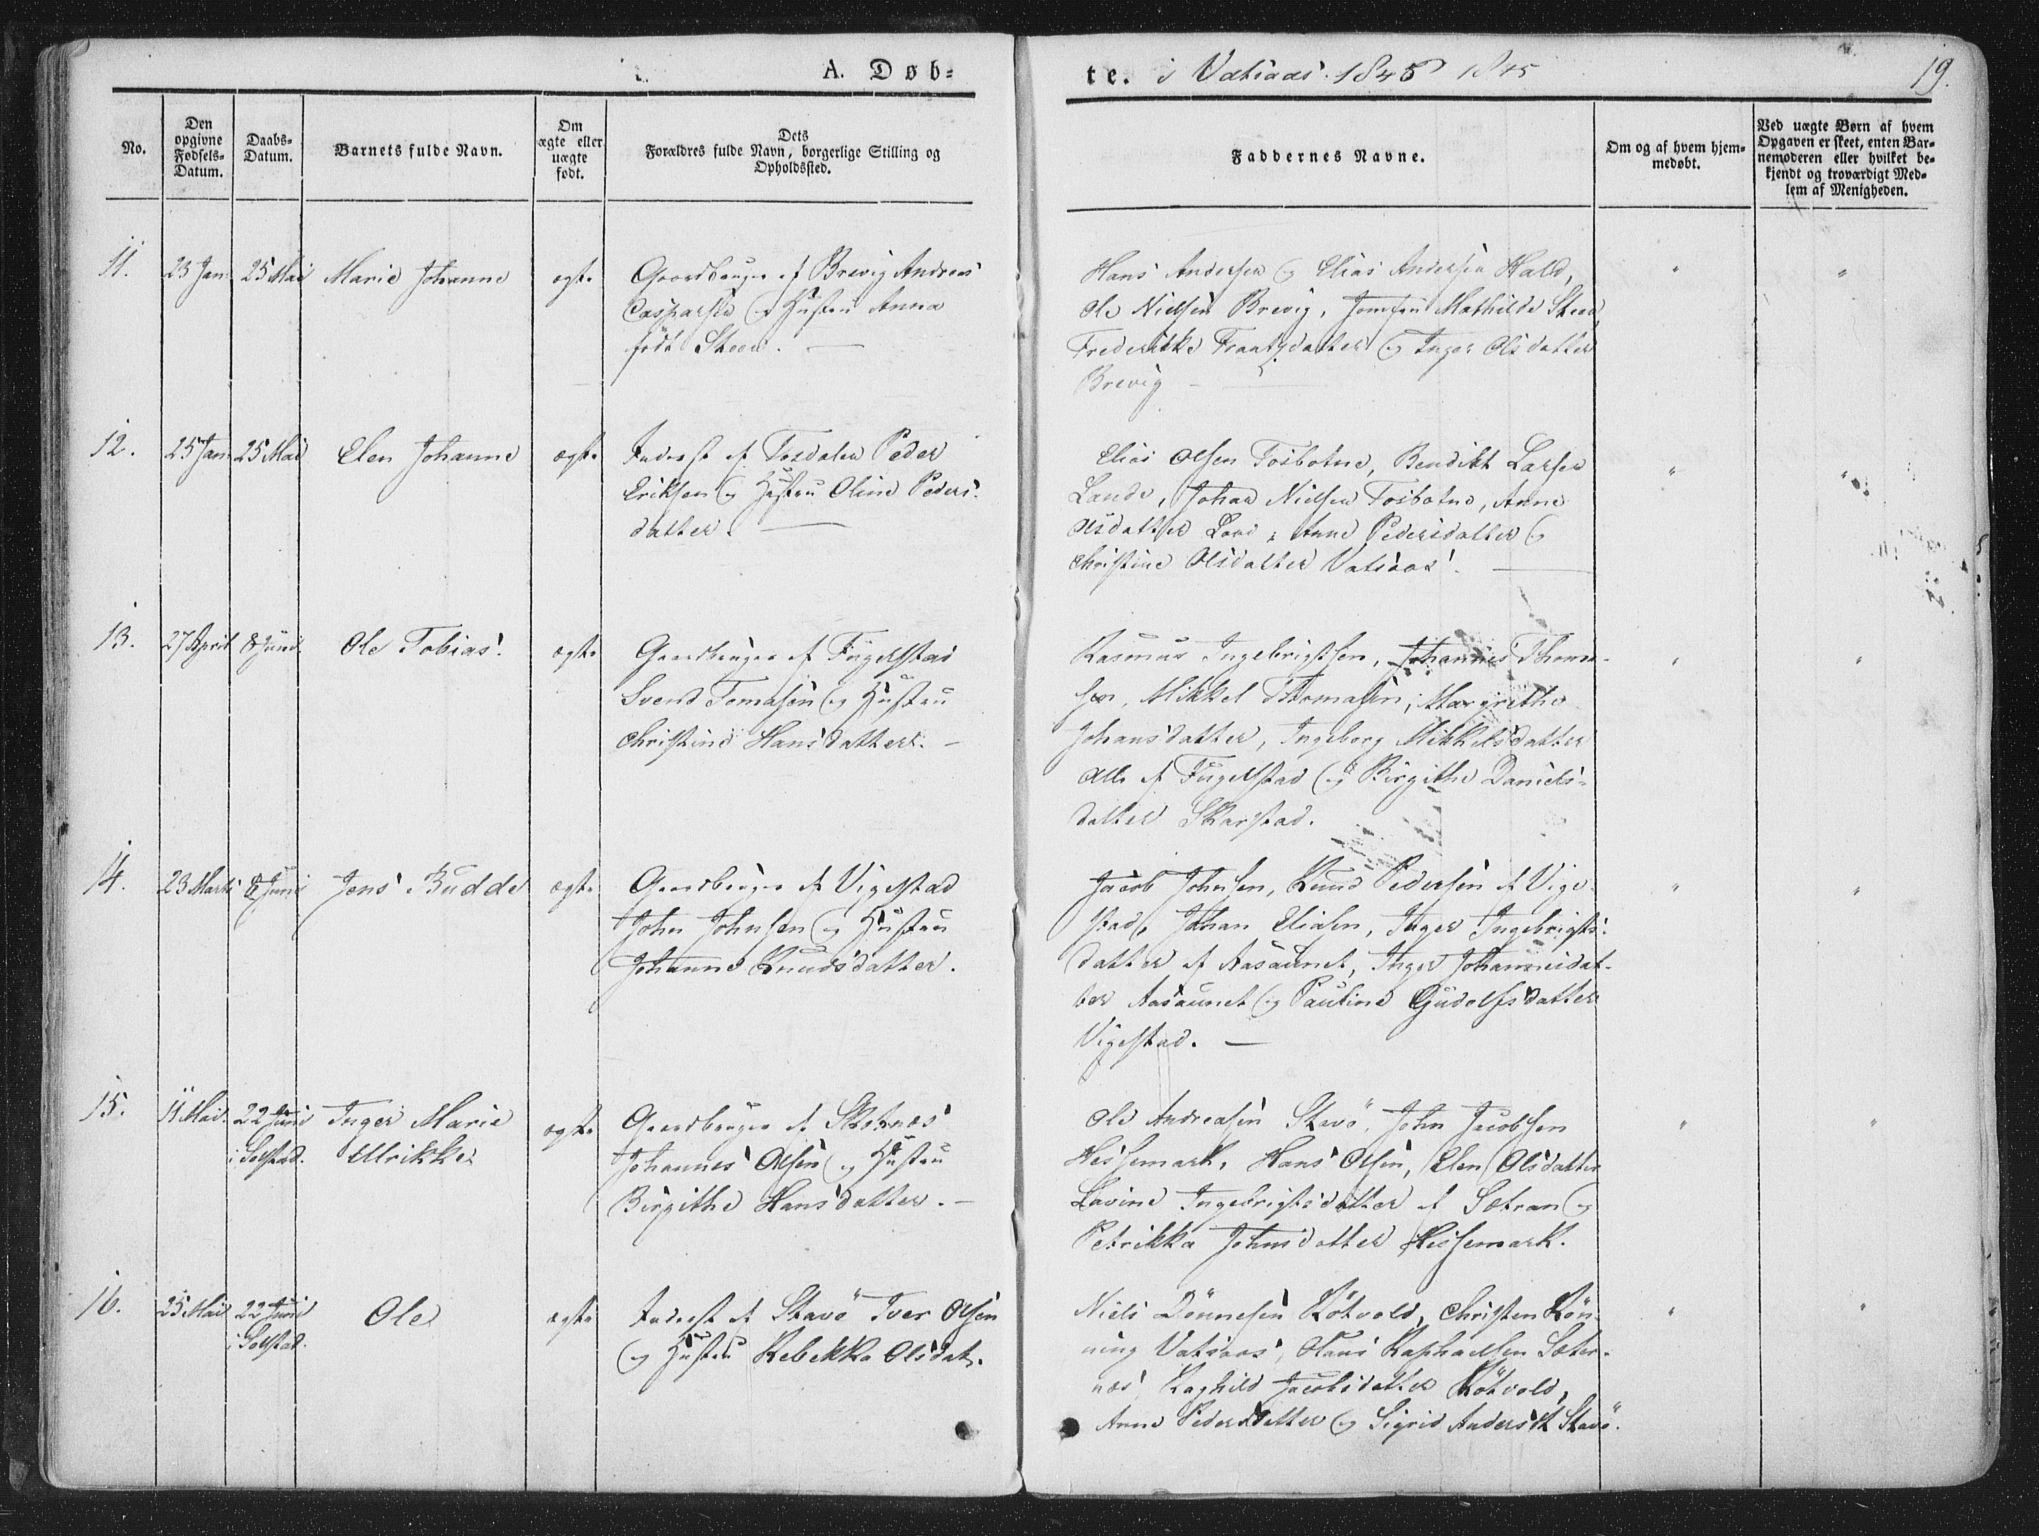 A. Døb=
te. i Vatsaas 1845 1845
19.
No.
Den opgivne Fødsels-Datum.
Daabs-Datum.
Barnets fulde Navn.
Om ægte eller uægte født.
Dets Forældres fulde Navn, borgerlige Stilling og Opholdssted.
Faddernes Navne.
Om og af hvem hjemmedøbt.
Ved uægte Børn af hvem Opgaven er skeet, enten Barnemoderen eller hvilket bekjendt og troværdigt Medlem af Menigheden.
11. 23 Jan 25 Mai Marie Johanne ægte
Gaardbruger af Brevig Andreas
Casparsen og Hustru Anna
født Steen. —
Hans Andersen og Elias Andersen Hald,
Ole Nielsen Brevig, Jomfru Mathilde Steen
Frederikke Frantzdatter og Inger Olsdatter
Brevig —
" "
12. 25 Jan 25 Mai Elen Johanne ægte
Inderst af Tosdalen Peder
Eriksen og Hustru Oline Peders
datter. —
Elias Olsen Tosbotne, Bendikt Larsen
Lande, Johan Nielsen Tosbotne, Anne
Olsdatter Land, Anne Pedersdatter og
Christine Olsdatter Vatsaas. —
" "
13. 27 April 8 Juni Ole Tobias ægte
Gaardbruger af Fugelstad
Svend Tomasen og Hustru
Christine Hansdatter. —
Rasmus Ingebrigtsen, Johannes Thoma-
sen, Mikkel Thomasen, Margrethe
Johansdatter, Ingeborg Mikkelsdatter
alle af Fugelstad og Birgithe Daniels-
datter Skarstad.
" "
14. 23 Marts 8 Juni Jens Budde ægte
Gaardbruger af Vigestad
John Johnsen og Hustru
Johanne Knudsdatter.
Jacob Johnsen, Knud Pedersen af Vige
stad, Johan Eliasen, Inger Ingebrigts-
datter af Aasaunet, Inger Johannesdat-
ter Aasaunet og Pauline Gudolfsdatter
Vigestad. —
" "
15. 11 Mai 22 Juni i Solstad. Inger Marie
Ulrikke ægte
Gaardbruger af Skotnæs
Johannes Olsen og Hustru
Birgithe Hansdatter. —
Ole Andreasen Stavö, John Jacobsen
Heissemark, Hans Olsen, Elen Olsdatter
Lavine Ingebrigtsdatter af Sætran og
Petrikka Johnsdatter Heissemark.
" "
16. 25 Mai 22 Juni i Solstad. Ole ægte
Inderst af Stavö Iver Olsen
og Hustru Rebekka Olsdat.
Niels Dönnesen Kötvold, Christen Rön-
ning Vatsaas, Hans Raphaelsen Sæter-
næs, Raghild Jacobsdatter Kötvold,
Anne Pedersdatter og Sigrid Andersd. Stavö.
" "